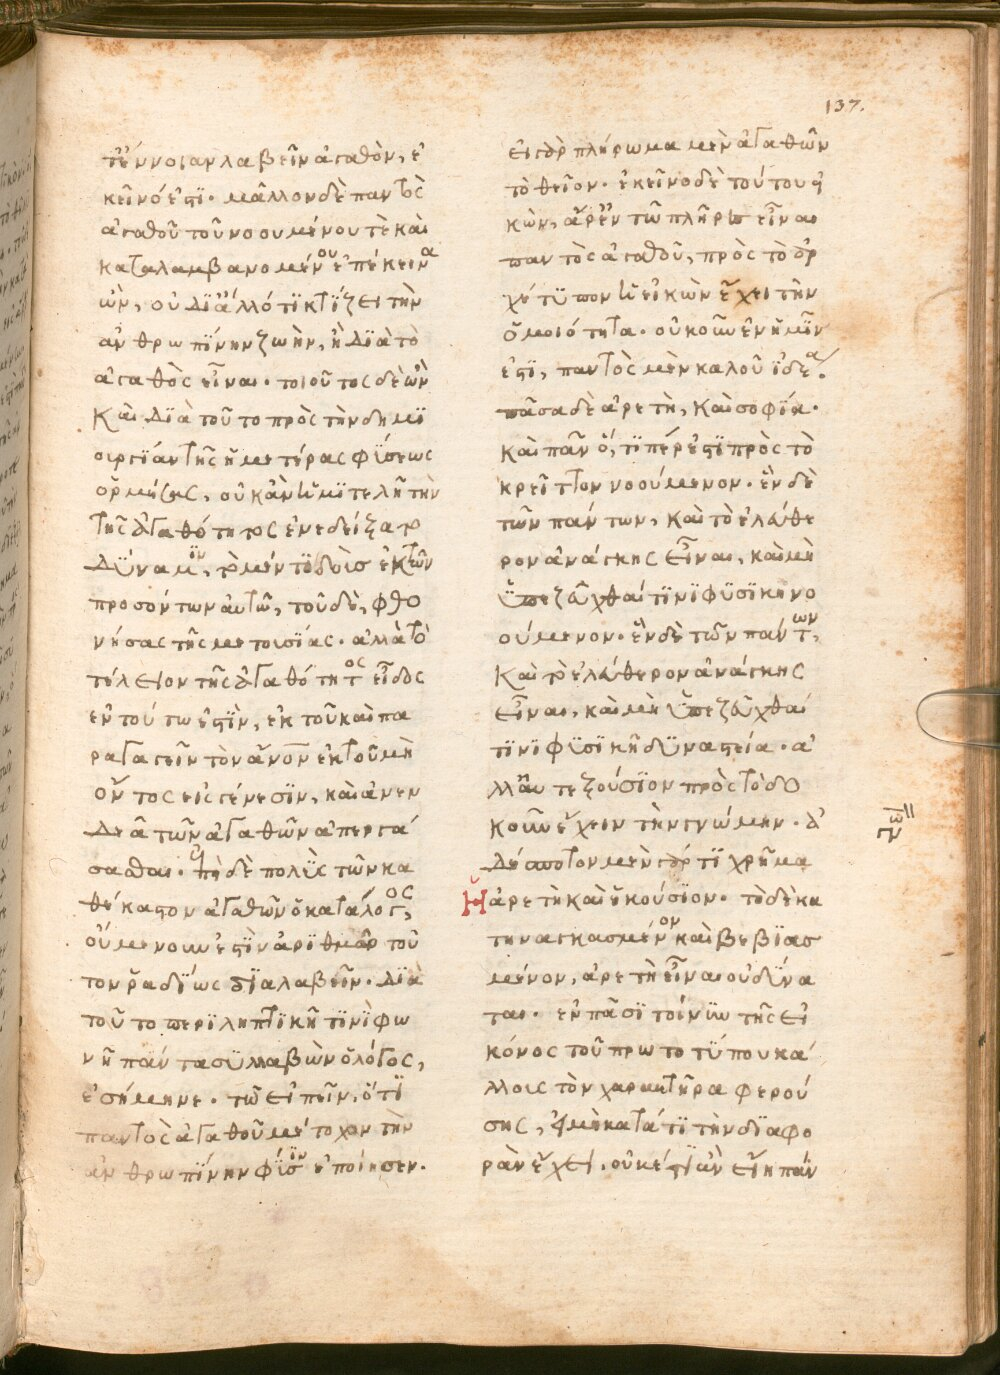 137.
τἔννοιαν λαβεῖν ἀγαθὸν, ἐ
κεῖνό ἐστϊ· μᾶλλον δὲ παντὸς
ἀγαθοῦ τοῦ νοουμένου τὲ καὶ
καταλαμβανομένου ἐπέκεινα
ὢν, οὐ δϊἄλλό τϊ κτϊζει τὴν
ἀνθρωπίνην ζωὴν, ἢ δϊὰ τὸ
ἀγαθὸς εἶναι· τοιοῦτος δὲ ὢν
καὶ δϊὰ τοῦτο πρὸς τὴν δημϊ
ουργϊαν τῆς ἡμετέρας φϋσεως
ὁρμήσας, οὐκ ἂν ἡμϊτελῆ τὴν
τῆς ἀγαθότητος ἐνεδείξατο
δϋναμϊν, τὸ μέν τϊ δοὺς ἐκ τῶν
προσόντων αὐτῶ, τοῦ δὲ, φθο
νήσας τῆς μετουσίας· ἀλλὰ τὸ
τέλειον τῆς ἀγαθότητος εἶδος
ἐν τούτω ἐστὶν, ἐκ τοῦ καὶ πα
ραγαγεῖν τὸν ἄνον ἐκ τοῦ μὴ
ὄντος εἰς γένεσϊν, καὶ ἀνεν
δεᾶ τῶν ἀγαθῶν ἀπεργά
σασθαι· ἐπὶ δὲ πολὺς τῶν κα
θέκαστον ἀγαθῶν ὁ κατάλογος,
οὐ μὲν οὖν ἐστὶν ἀρϊθμῶ τοῦ
τον ῥαδϊως δϊαλαβεῖν· δϊὰ
τοῦτο περϊληπτϊκῆ τϊνϊ φω
νῆ πάντα συλλαβὼν ὁ λόγος,
ἐσήμηνε· τῶ εἰπεῖν, ὅτϊ
παντὸς ἀγαθοῦ μέτοχον τὴν
ἀνθρωπϊνην φϋσϊν ἐποίησεν·
εἰ γὰρ πλήρωμα μὲν ἀγαθῶν
τὸ θεῖον· ἐκεῖνο δὲ τούτου εἰ
κὼν, ἆρ ἐν τῶ πλῆρες εἶναι
παντὸς ἀγαθοῦ, πρὸς τὸ ἀρ
χέτϋπον ἡ εἰκὼν ἔχει τὴν
ὁμοιότητα· οὐκοῦν ἐν ἡμῖν
ἐστϊ, παντὸς μὲν καλοῦ ἰδέα·
πᾶσα δὲ ἀρετὴ, καὶ σοφϊα·
καὶ πᾶν ὅ, τϊ πέρ ἐστϊ πρὸς τὸ
κρεῖττον νοούμενον· ἓν δὲ
τῶν πάντων, καὶ τὸ ἐλεύθε
ρον ἀνάγκης εἶναι, καὶ μὴ
ὑπεζεῦχθαί τϊνϊ φϋσϊκη νο
ούμενον· ἓν δὲ τῶν πάντων,
καὶ τὸ ἐλεύθερον ἀνάγκης
εἶναι, καὶ μὴ ὑπεζεῦχθαί
τϊνϊ φϋσϊκῆ δϋναστεία· ἀ
λλαυτεξούσϊον πρὸς τὸ δο
κοῦν ἔχειν τὴν γνώμην· ἀ
δέσποτον μὲν γάρ τϊ χρῆμα
ἡ ἀρετὴ καὶ ἑκούσϊον· τὸ δὲ κα
τηναγκασμένον καὶ βεβϊασ
μένον, ἀρετὴ εἶναι οὐ δϋνα
ται· ἐν πᾶσϊ τοίνυν τῆς εἰ
κόνος τοῦ πρωτοτϋπου κά
λλους τὸν χαρακτῆρα φερού
σης, εἰ μὴ κατά τϊ τὴν δϊαφο
ρὰν ἔχει· οὐκέτϊ ἂν εἴη πάν